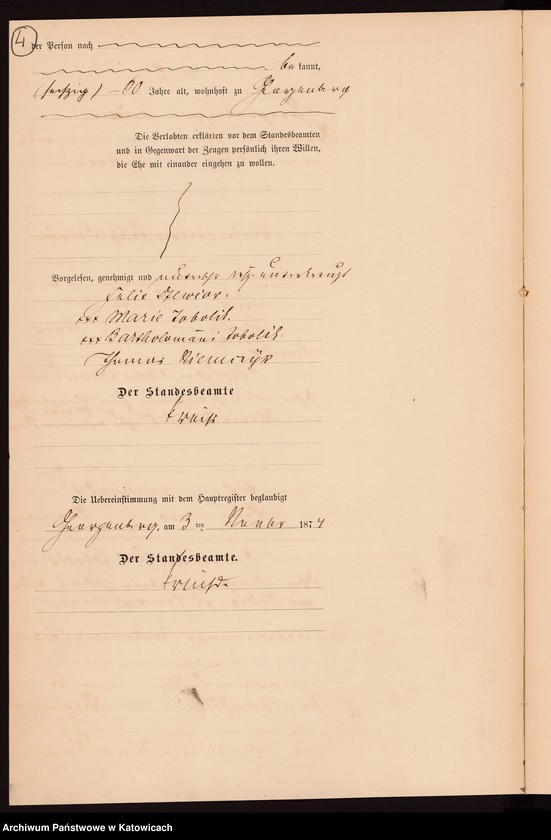 4
der Person nach
bekannt,
(sechzig) – 60 Jahre alt, wohnhaft zu Georgenberg
Die Verlobten erklärten vor dem Standesbeamten
und in Gegenwart der Zeugen persönlich ihren Willen,
die Ehe mit einander eingehen zu wollen.
Vorgelesen, genehmigt und
xxx Marie Sobolik.
xxx Bartholomäus Sobolik.
Thomas Niemczyk
Der Standesbeamte
Die Uebereinstimmung mit dem Hauptregister beglaubigt
Georgenberg, am 3 ten Novbr 1874
Der Standesbeamte.
Archiwum Państwowe w Katowicach